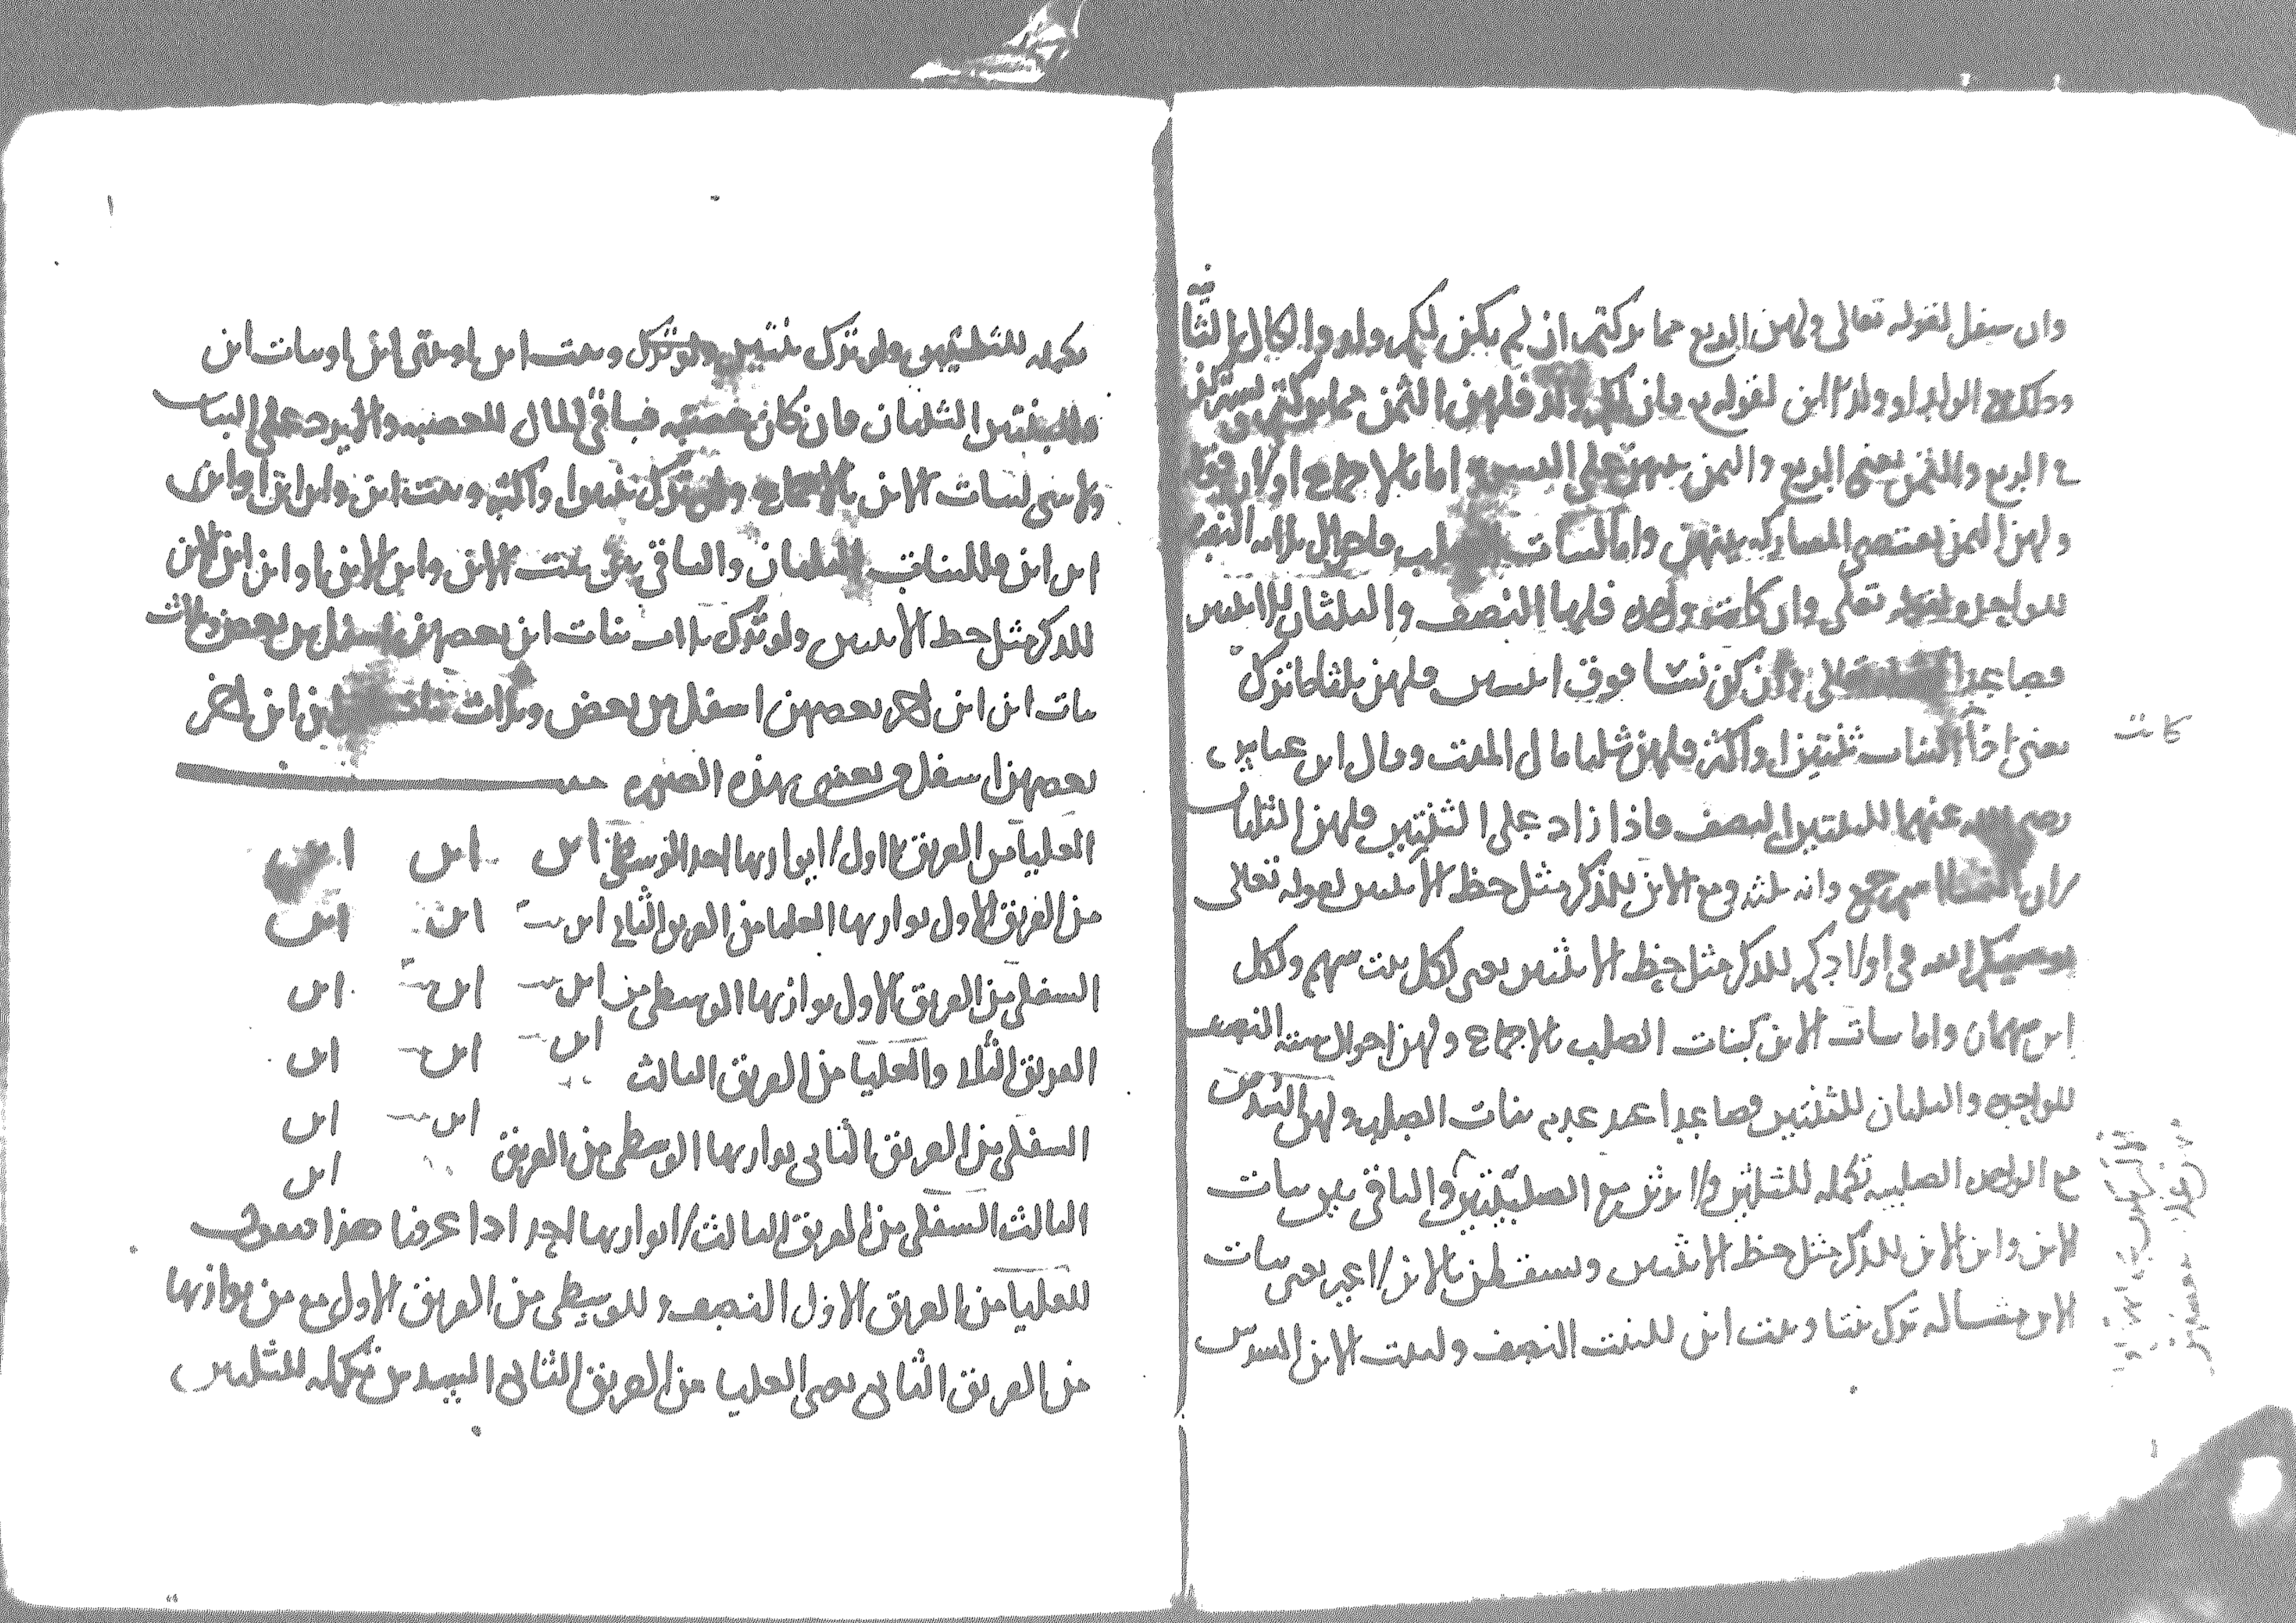 وان سفل لقوله تعالى ولهن الربع مما تركتم ان لم يكن لكم ولد والحال الثا
وذلك مع الولد او ولد الابن لقوله فان كان لكم ولد فلهن الثمن مما تركتم
في الربع والثمن يعني الربع والثمن بينهن على السوية اما بالاجماع او لان قوله
ولهن الثمن يقتضي المشاركة بينهن واما البنات الصلب فاحوال ثلاثة النصف
للواحدة لقوله تعالى وان كانت واحدة فلها النصف والثلثان للاثنتين
فصاعدا تعالى وان كن نسا فوق اثنتين فلهن ثلثا ما ترك
يعني اذا البنات ثنتين او اكثر فلهن ثلثا مال الميت وقال ابن عباس
كانت
رضي الله عنهما للبنتين النصف فاذا زاد على الثنتين فلهن الثلثان
لان النسا جمع وانه ثلثة ومع الابن للذكر مثل حظ الانثيين لقوله تعالى
يوصيكم الله في اولادكم للذكر مثل حظ الانثيين يعني لكل بنت سهم ولكل
ابن سهمان واما بنات الابن كبنات الصلب بالاجماع ولهن احوال ستة النصف
للواحدة والثلثان للثنتين فصاعدا عند عدم بنات الصلب ولهن السدس
مع الواحدة الصلبية تكملة للثلثين ولا يرثن مع الصلبيتين والباقي بين بنات
الابن وابن الابن للذكر مثل حظ الانثيين ويسقطن بالابن يعني بنات
الابن مثاله ترك بنتا وبنت ابن للبنت النصف ولبنت الابن السدس
تكملة للثلثين ولو ترك بنتين وبنت ابن او بنتي ابن او بنات ابن
فللبنتين الثلثان فان كان عصبة فباقي المال للعصبة والا يرد على البنات
ولا شي لبنات الابن بالاجماع ولو ترك بنتين او اكثر وبنت ابن وابن ابن او ابن
ابن ابن فللبنات الثلثان والباقي بين بنت الابن وابن الابن او ابن ابن الابن
للذكر مثل حظ الانثيين ولو ترك ثلاث بنات ابن بعضهن اسفل من بعض وثلاث
بنات ابن ابن اخر بعضهن اسفل من بعض وثلاث بنات ابن ابن اخر
بعضهن اسفل من بعض بهذه الصورة
العليا من الفريق الاول لا يوازيها احد الوسطى ابن ابن ابن
من الفريق الاول يوازيها العليا من الفريق الثاني ابن بنت ابن ابن
السفلى من الفريق الاول يوازيها الوسطى من ابن بنت ابن بنت ابن
الفريق الثاني والعليا من الفريق الثالث ابن بنت ابن بنت ابن
السفلى من الفريق الثاني يوازيها الوسطى من الفريق ابن بنت ابن
ابن
الثالث السفلى من الفريق الثالث لا يوازيها احد اذا عرفنا هذا فنقول
للعليا من الفريق الاول النصف وللوسطى من الفريق الاول مع من يوازيها
من الفريق الثاني يعني العليا من الفريق الثاني السدس تكملة للثلثين